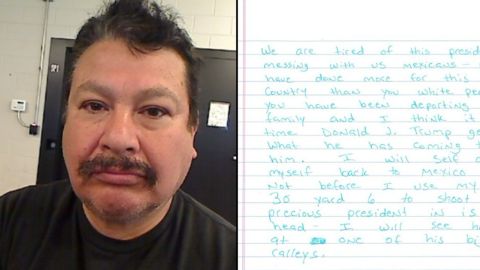 We are tired of this presid
messing with us mexicans -
have done more for this
Country than you white pe
you have been deporting
family and I think it
time Donald J. Trump ge
What he has coming t
him. I will Self d
myself back to Mexico
Not before I use my
30 yard 6 to shoot
precious president in is
head - I will see h
at one of his bi
ralleys.